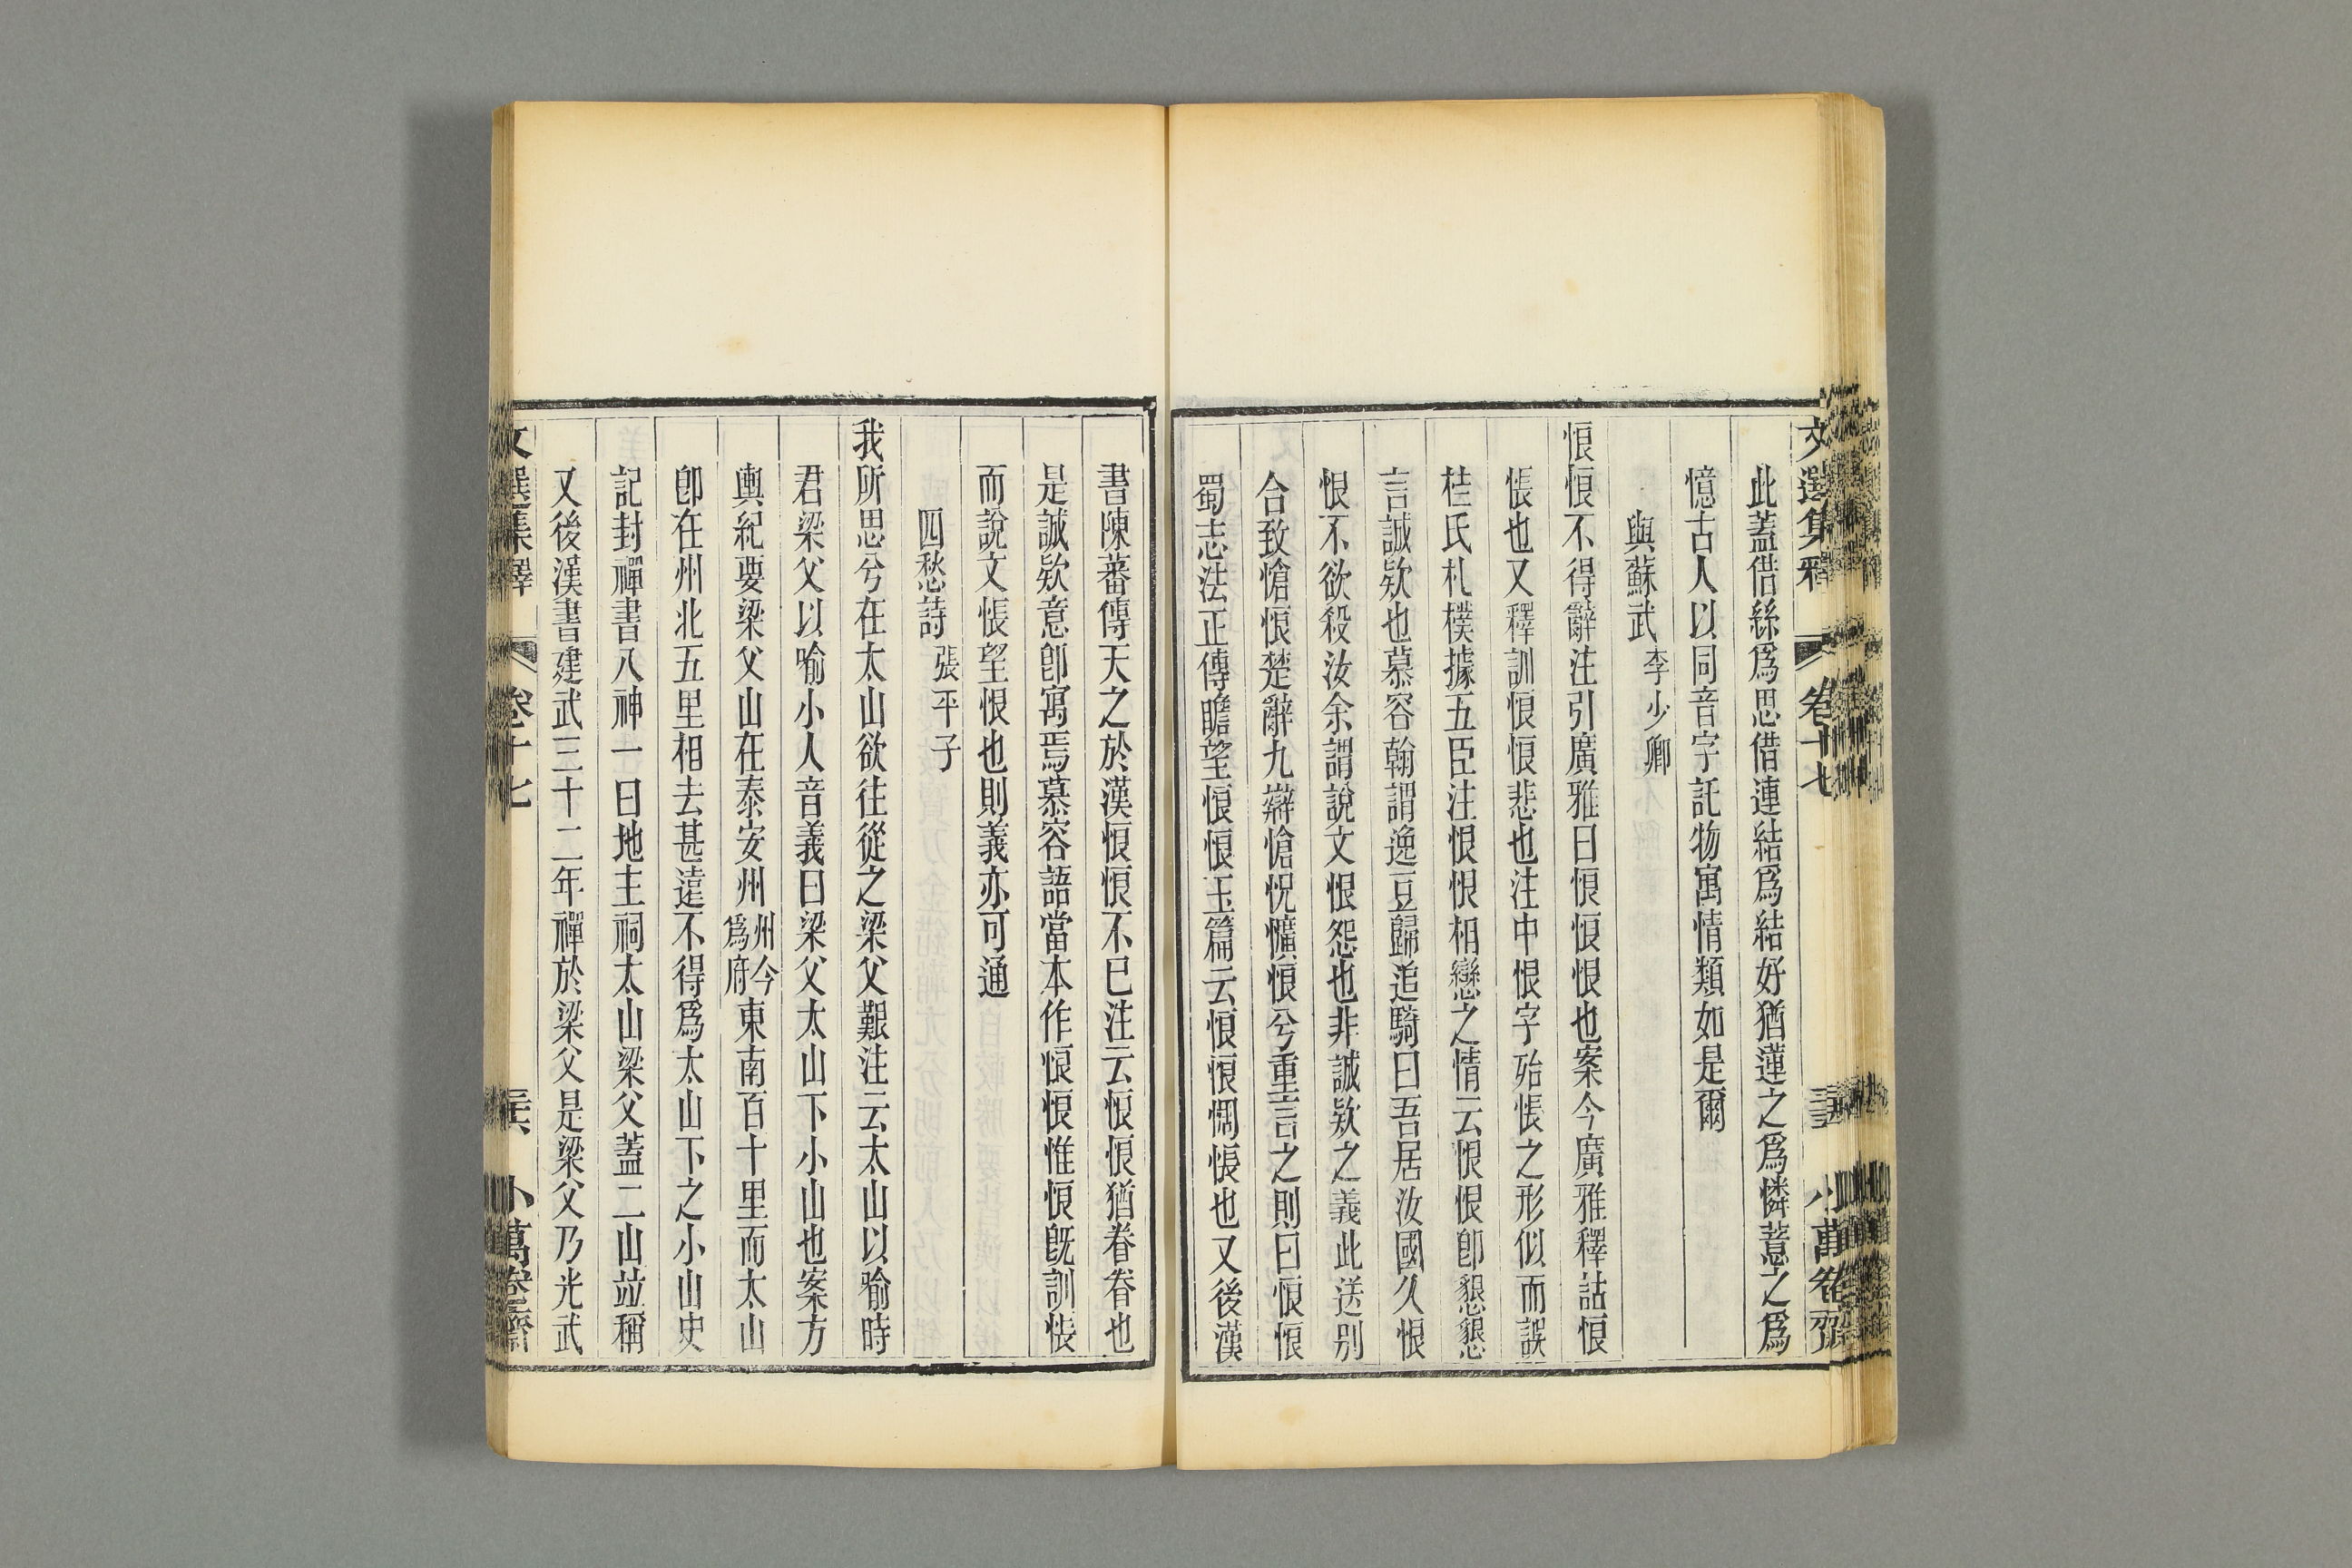 文選集釋 卷十七 小萬卷齋
此蓋借絲爲思借連結爲結好猶蓮之爲憐薏之爲
憶古人以同音字託物寓情類如是爾
與蘇武 李少卿
悢悢不得辭注引廣雅曰悢悢恨也案今廣雅釋詁悢
悵也又釋訓悢悢悲也注中恨字殆悵之形似而誤
桂氏札樸據五臣注恨恨相戀之情云恨恨卽懇懇
言誠欵也慕容翰謂逸豆歸追騎曰吾居汝國久恨
恨不欲殺汝余謂說文恨怨也非誠欵之義此送别
合致愴悢楚辭九辯愴怳懭悢兮重言之則曰悢悢
蜀志法正傳瞻望悢悢玉篇云悢悢惆悵也又後漢
書陳蕃傳天之於漢悢悢不已注云悢悢猶眷眷也
是誠欵意卽寓焉慕容語當本作悢悢惟悢旣訓悵
而說文悵望恨也則義亦可通
四愁詩 張平子
我所思兮在太山欲往從之梁父艱注云太山以喻時
君梁父以喻小人音義曰梁父太山下小山也案方
輿紀要梁父山在泰安州州今爲府東南百十里而太山
卽在州北五里相去甚遠不得爲太山下之小山史
記封禪書八神一曰地主祠太山梁父蓋二山竝稱
又後漢書建武三十二年禪於梁父是梁父乃光武
文選集釋 卷十七 小萬卷齋